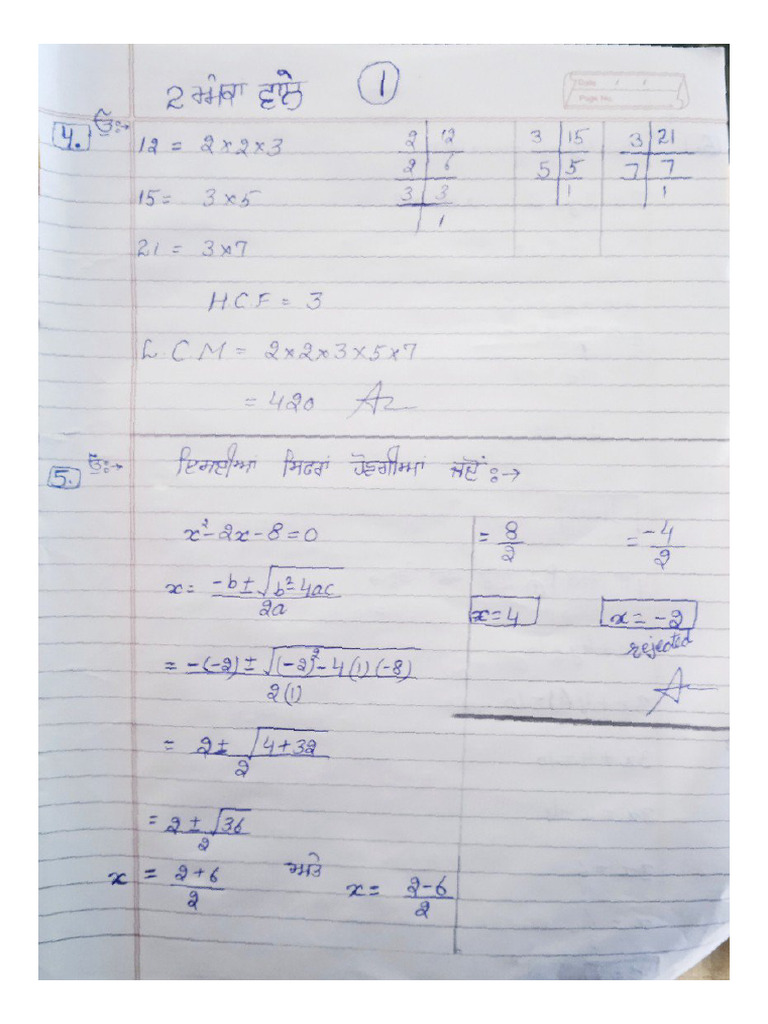 2 ਅੰਕਾ ਵਾਲੇ ①
Date / /
Page No.
4. ਉ:→
12 = 2×2×3
15 = 3×5
21 = 3×7
2 | 12
2 | 6
3 | 3
1
3 | 15
5 | 5
1
3 | 21
7 | 7
1
HCF = 3
L.C.M = 2×2×3×5×7
= 420
5. ਉ:→ ਇਸਦੀਆਂ ਸਿਫਰਾਂ ਹੋਣਗੀਆਂ ਜਦੋਂ :→
x²-2x-8=0
x = -b ± √b²-4ac / 2a
= -(-2) ± √(-2)²-4(1)(-8) / 2(1)
= 2 ± √4+32 / 2
= 2 ± √36 / 2
x = 2+6 / 2 ਅਤੇ x = 2-6 / 2
= 8/2 = -4/2
x=4 x=-2
rejected